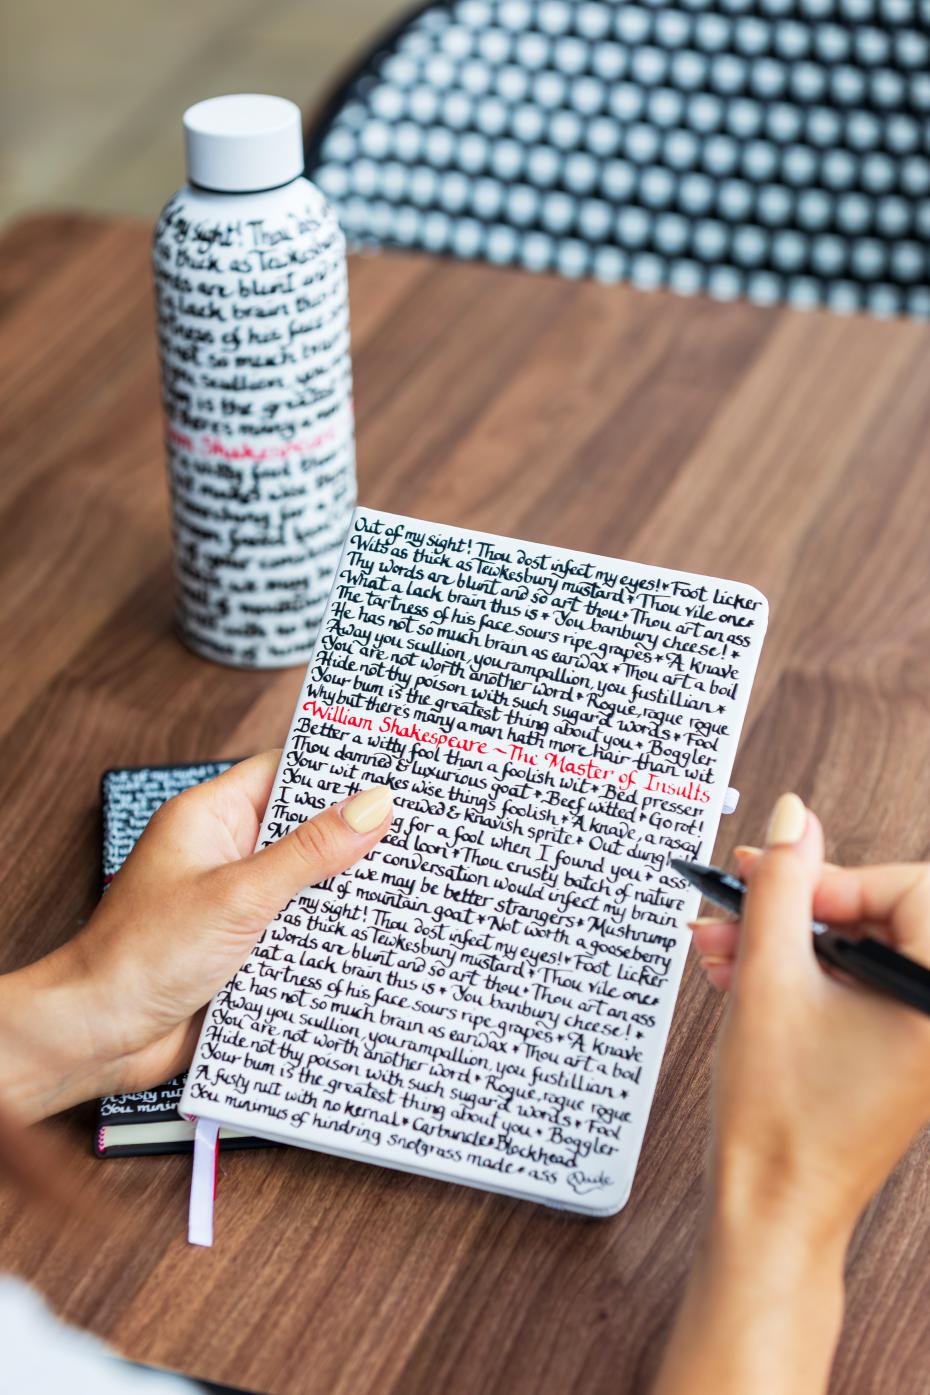 my sight! Thou
thick as Tewkesbury
are blunt and
a lack brain this
of his face
not so much brain
scullion, you
is the greatest
there's many a man
Shakespeare
a witty fool than
Out of my sight! Thou dost infect my eyes! * Foot licker
Wits as thick as Tewkesbury mustard * Thou vile one *
Thy words are blunt and so art thou * Thou art an ass
What a lack brain this is * You banbury cheese! *
The tartness of his face sours ripe grapes * A knave
He has not so much brain as earwax * Thou art a boil
Away you scullion, you rampallion, you fustillian *
You are not worth another word * Rogue, rogue rogue
Hide not thy poison with such sugar'd words * Fool
Your bum is the greatest thing about you * Boggler
Why but there's many a man hath more hair than wit
William Shakespeare ~ The Master of Insults
Better a witty fool than a foolish wit * Bed presser
Thou damned & luxurious goat * Beef witted * Go rot!
Your wit makes wise things foolish * A knave, a rascal
You are th crewed & knavish sprite * Out dungh
I was g for a fool when I found you * ass!
Thou ced loon * Thou crusty batch of nature
r conversation would infect my brain
we may be better strangers * Mushrump
of mountain goat * Not worth a gooseberry
my sight! Thou dost infect my eyes! * Foot licker
as thick as Tewkesbury mustard * Thou vile one *
words are blunt and so art thou * Thou art an ass
hat a lack brain this is * You banbury cheese! *
e tartness of his face sours ripe grapes * A knave
He has not so much brain as earwax * Thou art a boil
Away you scullion, you rampallion, you fustillian *
You are not worth another word * Rogue, rogue rogue
Hide not thy poison with such sugar'd words * Fool
Your bum is the greatest thing about you * Boggler
A fusty nut with no kernal * Carbuncle * Blockhead
You minimus of hindring knotgrass made * ass
A fusty nut
You minim